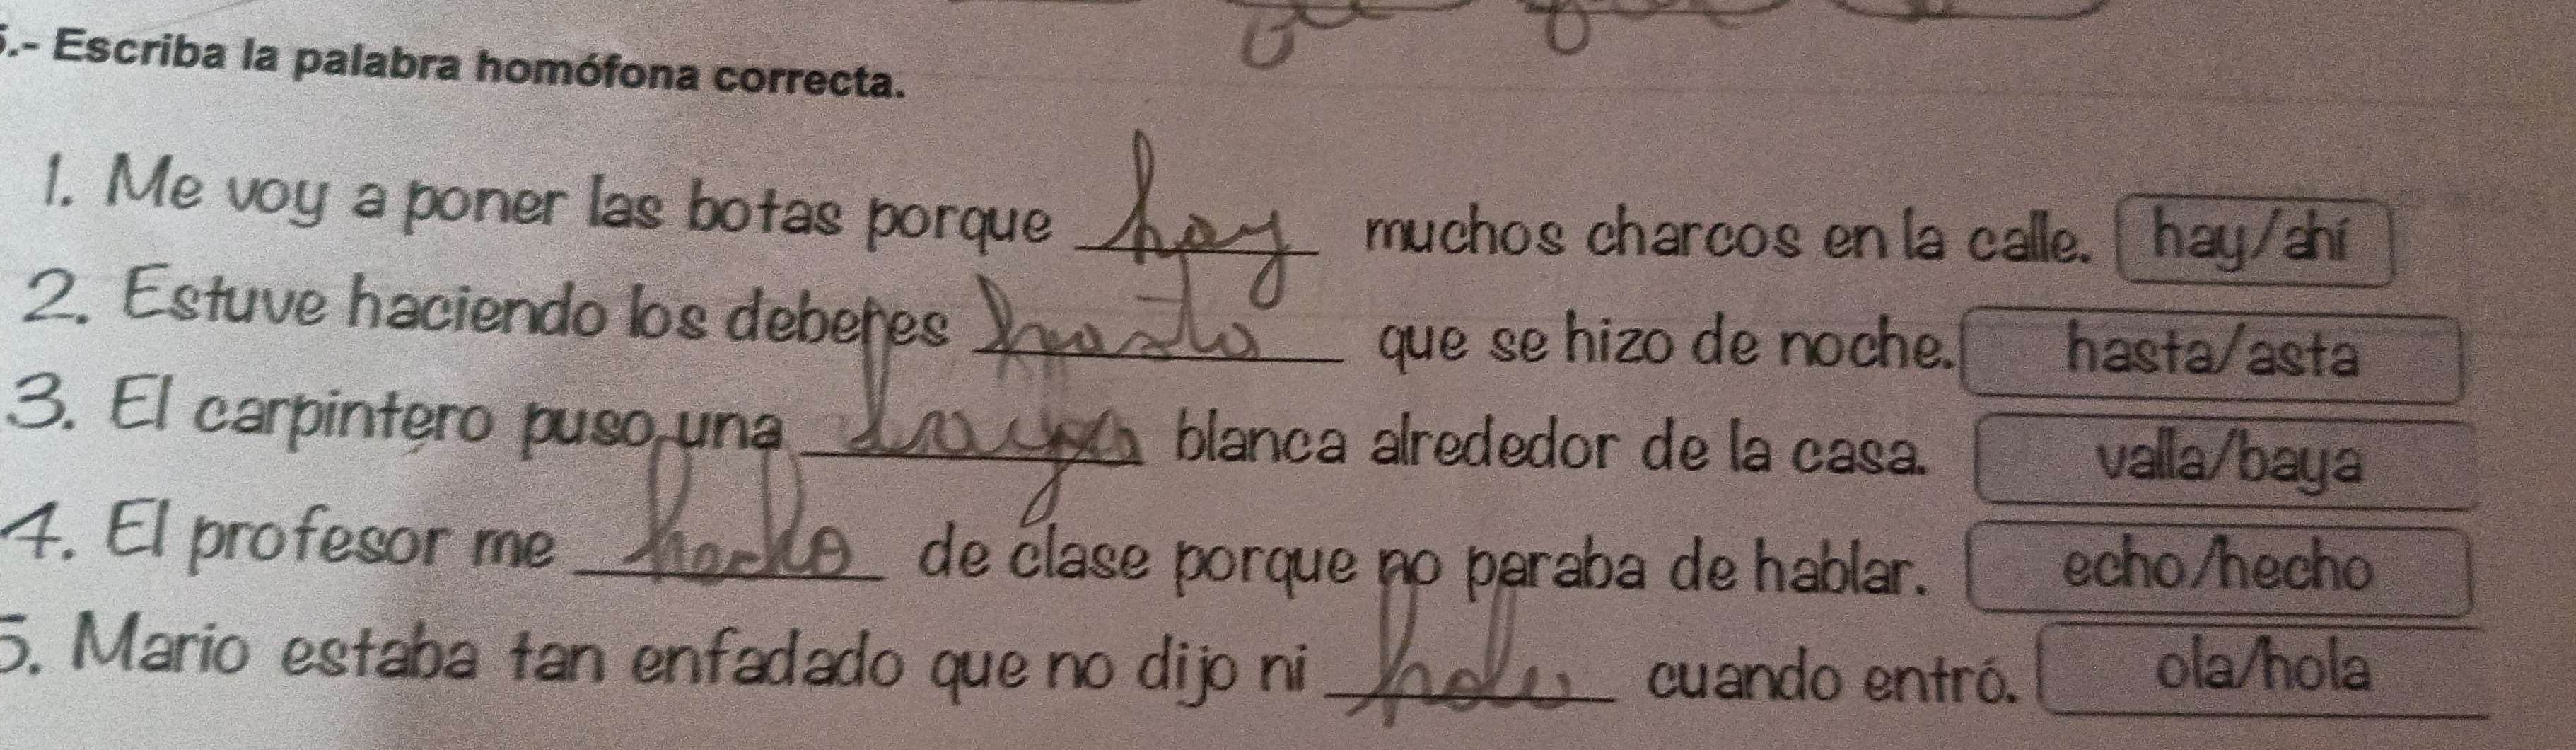 5.- Escriba la palabra homófona correcta.
1. Me voy a poner las botas porque hay muchos charcos en la calle. hay/ahí
2. Estuve haciendo los deberes hasta que se hizo de noche. hasta/asta
3. El carpintero puso una baya blanca alrededor de la casa. valla/baya
4. El profesor me hecho de clase porque no paraba de hablar. echo/hecho
5. Mario estaba tan enfadado que no dijo ni hola cuando entró. ola/hola